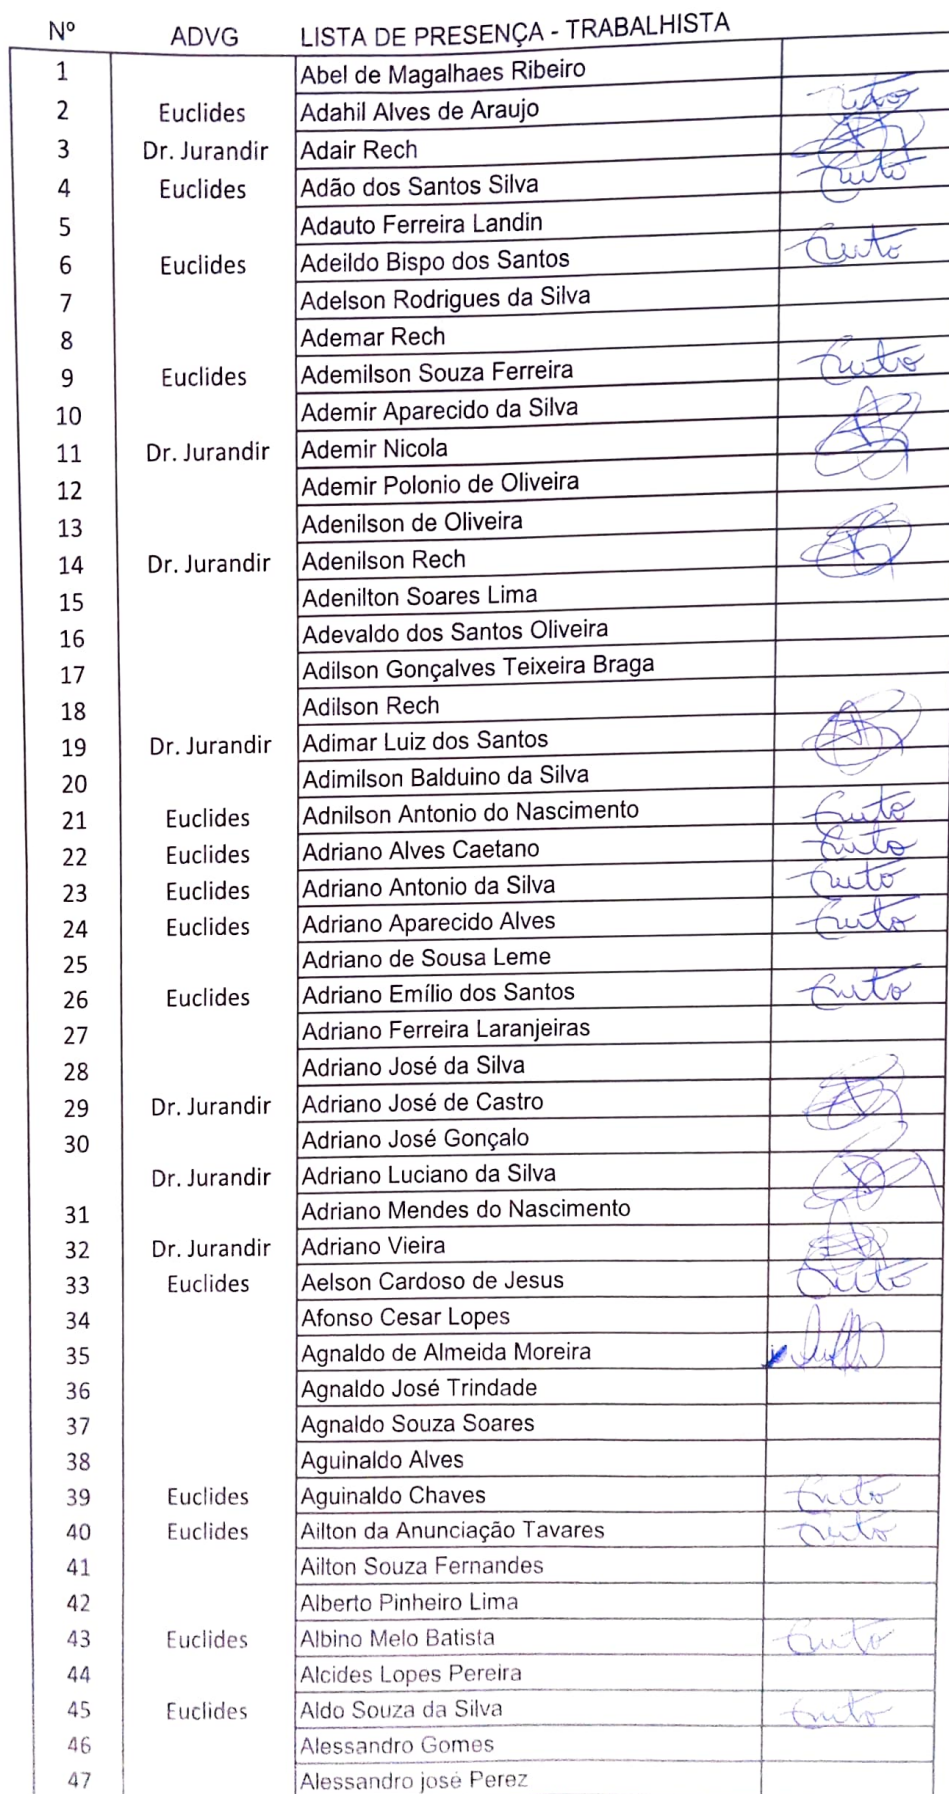 Nº ADVG LISTA DE PRESENÇA - TRABALHISTA
1 Abel de Magalhaes Ribeiro
2 Euclides Adahil Alves de Araujo
3 Dr. Jurandir Adair Rech
4 Euclides Adão dos Santos Silva
5 Adauto Ferreira Landin
6 Euclides Adeildo Bispo dos Santos
7 Adelson Rodrigues da Silva
8 Ademar Rech
9 Euclides Ademilson Souza Ferreira
10 Ademir Aparecido da Silva
11 Dr. Jurandir Ademir Nicola
12 Ademir Polonio de Oliveira
13 Adenilson de Oliveira
14 Dr. Jurandir Adenilson Rech
15 Adenilton Soares Lima
16 Adevaldo dos Santos Oliveira
17 Adilson Gonçalves Teixeira Braga
18 Adilson Rech
19 Dr. Jurandir Adimar Luiz dos Santos
20 Adimilson Balduino da Silva
21 Euclides Adnilson Antonio do Nascimento
22 Euclides Adriano Alves Caetano
23 Euclides Adriano Antonio da Silva
24 Euclides Adriano Aparecido Alves
25 Adriano de Sousa Leme
26 Euclides Adriano Emílio dos Santos
27 Adriano Ferreira Laranjeiras
28 Adriano José da Silva
29 Dr. Jurandir Adriano José de Castro
30 Adriano José Gonçalo
Dr. Jurandir Adriano Luciano da Silva
31 Adriano Mendes do Nascimento
32 Dr. Jurandir Adriano Vieira
33 Euclides Aelson Cardoso de Jesus
34 Afonso Cesar Lopes
35 Agnaldo de Almeida Moreira
36 Agnaldo José Trindade
37 Agnaldo Souza Soares
38 Aguinaldo Alves
39 Euclides Aguinaldo Chaves
40 Euclides Ailton da Anunciação Tavares
41 Ailton Souza Fernandes
42 Alberto Pinheiro Lima
43 Euclides Albino Melo Batista
44 Alcides Lopes Pereira
45 Euclides Aldo Souza da Silva
46 Alessandro Gomes
47 Alessandro josé Perez